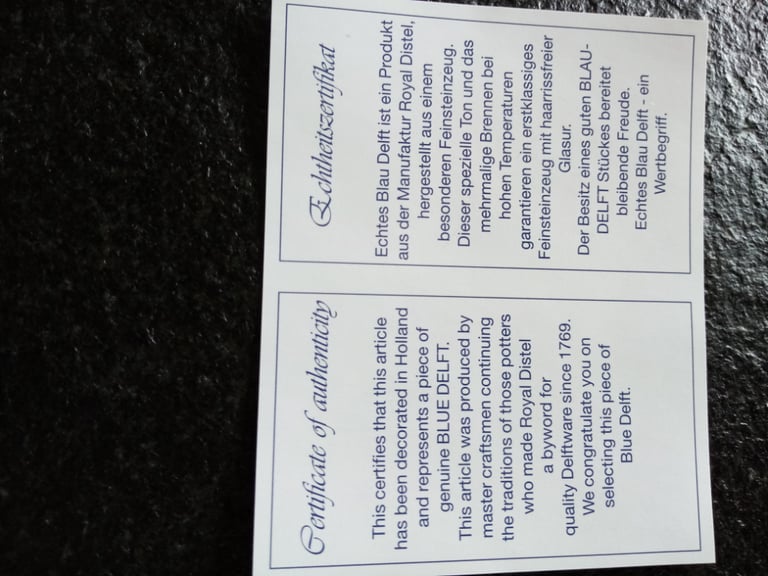 Certificate of authenticity
This certifies that this article
has been decorated in Holland
and represents a piece of
genuine BLUE DELFT.
This article was produced by
master craftsmen continuing
the traditions of those potters
who made Royal Distel
a byword for
quality Delftware since 1769.
We congratulate you on
selecting this piece of
Blue Delft.
Echtheitszertifikat
Echtes Blau Delft ist ein Produkt
aus der Manufaktur Royal Distel,
hergestellt aus einem
besonderen Feinsteinzeug.
Dieser spezielle Ton und das
mehrmalige Brennen bei
hohen Temperaturen
garantieren ein erstklassiges
Feinsteinzeug mit haarrissfreier
Glasur.
Der Besitz eines guten BLAU-
DELFT Stückes bereitet
bleibende Freude.
Echtes Blau Delft - ein
Wertbegriff.